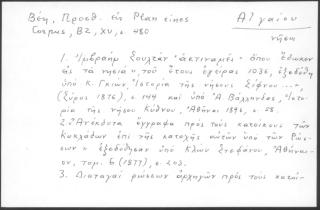 Βέη, Προσθ. εις Plan eines
Corpus, BZ, XV, σ. 480
Αἰγαίου
νῆσοι
1. Ἰμβραὴμ Σουλτὰν "ἀκτιναμὲς" ὅπου ἔδωκεν
εἰς τὰ νησία, τοῦ ἔτους ἐγείρας 1036, ἐξεδόθη
ὑπὸ Κ. Γκιών, Ἱστορία τῆς νήσου Σίφνου ...,
(Σύρος 1876), σ. 144 καὶ ὑπὸ Ἀ Βάλληνδα, Ἱστο-
ρία τῆς νήσου Κύθνου, Ἀθῆναι 1896, σ. 58.
2. Ἀνέκδοτα ἔγγραφα πρὸς τοὺς κατοίκους τῶν
Κυκλάδων ἐπὶ τῆς κατοχῆς αὐτῶν ὑπὸ τῶν Ρώσ-
σων ἐξεδόθησαν ὑπὸ Κλὼν Στεφάνου, Ἀθήναι-
ον, τομ. 6 (1877), σ. 203.
3. Διαταγαὶ ρώσσων ἀρχηγῶν πρὸς τοὺς κατοί-